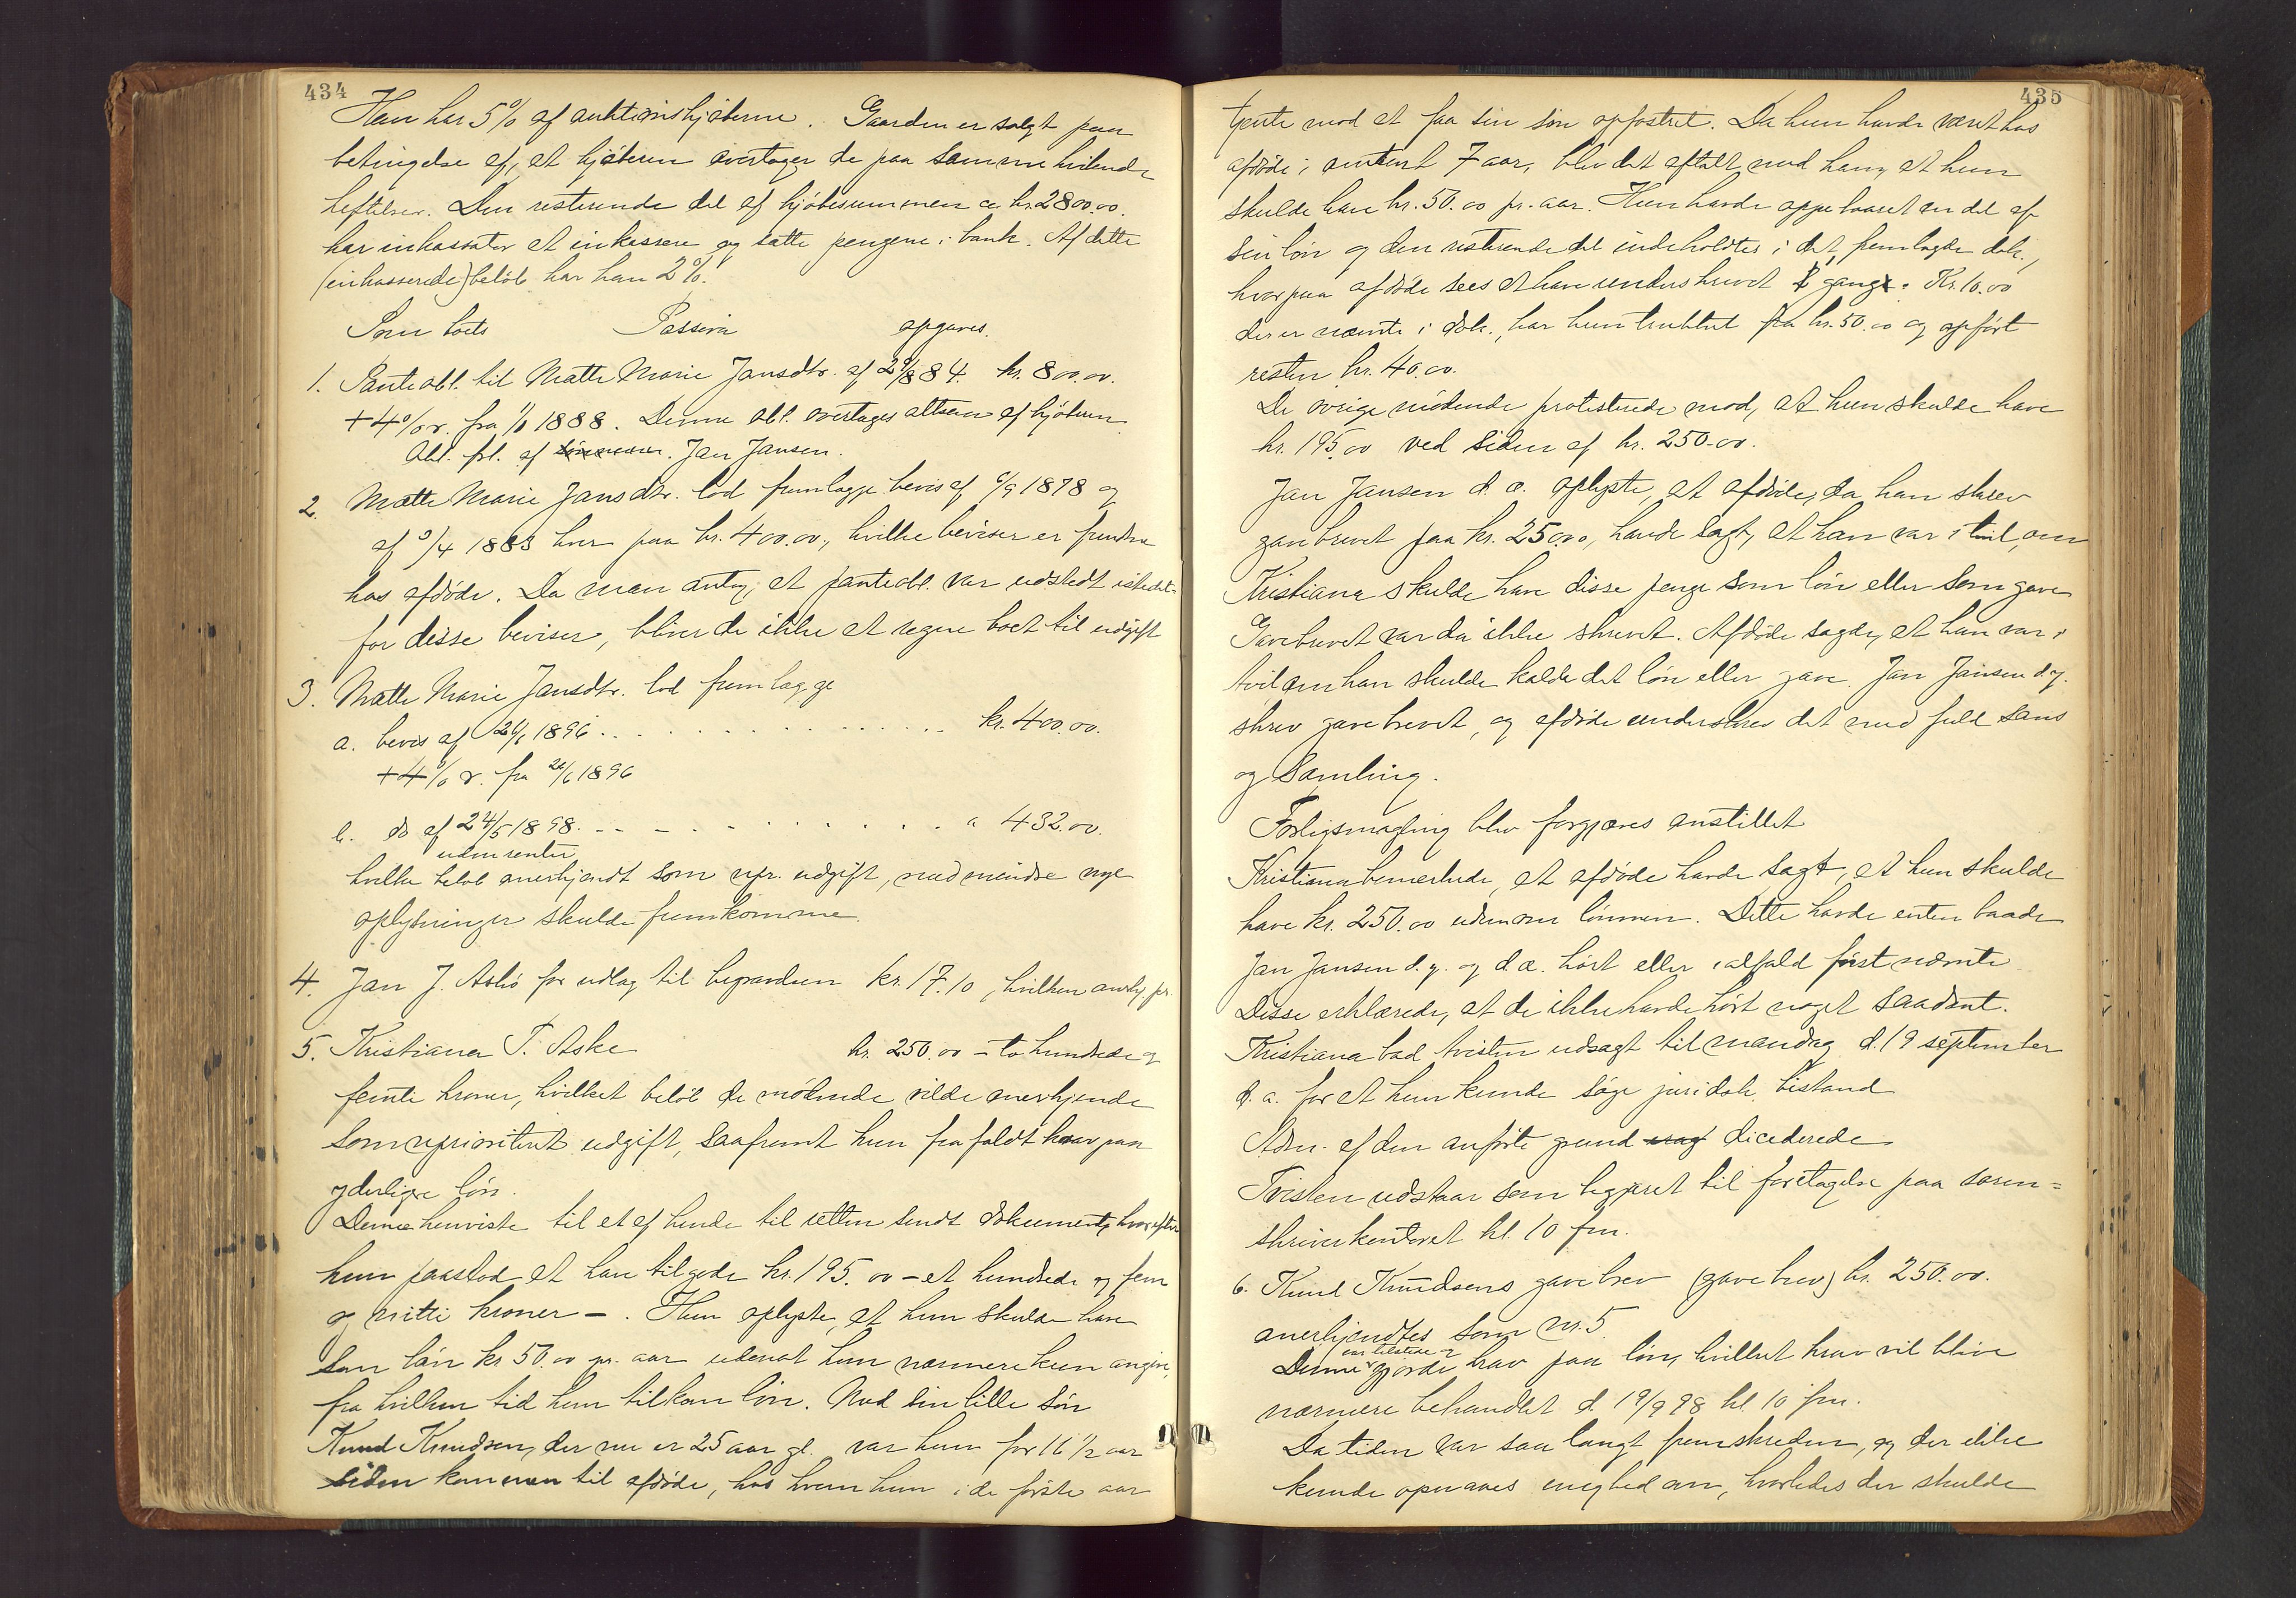 434
Han har 5% af auktionskjøberne. Gaarden er solgt paa
betingelse af, at kjøberen overtager de paa samme hvilende
heftelser. Den resterende del af kjøbesummen ca kr. 2800.00.
har inkassator at inkassere og sætte pengene i bank. Af dette
(inkasserede) beløb har han 2%.
Som boets Passiva opgaves.
1. Panteobl. til Mætte Marie Jansdtr. af 29/8 84. kr. 800.00.
+ 4% r. fra 1/1 1888. Denne obl. overtages altsaa af kjøberen
Obl. frl. af Jan Jansen.
2. Mætte Marie Jansdtr. lod fremlægge bevis af 6/9 1878 og
af 9/4 1883 hver paa kr. 400.00, hvilke beviser er fundne
hos afdøde. Da man antog, at panteobl. var udstedt istedet
for disse beviser, bliver de ikke at regne boet til udgift
3. Mætte Marie Jansdtr. lod fremlægge
a. bevis af 26/1 1896 . . . . . . . . . . . . kr. 400.00.
+ 4% r. fra 26/6 1896
b. do af 24/5 1898. . . . . . . . . . . . . " 432.00.
uden renter
hvilke beløb anerkjendt som upr. udgift, med mindre nye
oplysninger skulde fremkomme.
4. Jan J. Askø for udlæg til begravelsen kr. 17.10, hvilken anerkj. pr.
5. Kristiana T. Aske kr. 250.00 – to hundrede og
femti kroner, hvilket beløb de mødende vilde anerkjende
som uprioriteret udgift, saafremt hun frafaldt krav paa
yderligere løn.
Denne henviste til et af hende til retten sendt dokument, hvorefter
hun paastod at have tilgode kr. 195.00 – et hundrede og fem
og nitti kroner –. Hun oplyste, at hun skulde have
som løn kr 50.00 pr. aar uden at hun nærmere kun angive,
fra hvilken tid hun tilkom løn. Med sin lille søn
Knud Knudsen, der nu er 25 aar gl. var hun for 16 1/2 aar
siden kommen til afdøde, hos hvem hun i de første aar
435
tjente mod at faa sin søn opfostret. Da hun havde været hos
afdøde i omtrent 7 aar, blev det aftalt med ham, at hun
skulde have kr. 50.00 pr. aar. Hun havde oppebaaret en del af
sin løn og den resterende del indeholdtes i det fremlagte dok.,
hvorpaa afdøde sees at have underskrevet gang. Kr. 10.00
der er nævnte i dok., har hun trukket fra kr. 50.00 og opført
resten kr. 40.00.
De øvrige mødende protesterede mod, at hun skulde have
kr. 195.00 ved siden af kr. 250.00.
Jan Jansen d. æ. oplyste, at afdøde, da han skrev
gavebrevet paa kr. 250.00, havde sagt, at han var i tvil, om
Kristiana skulde have disse penge som løn eller som gave
Gavebrevet var da ikke skrevet. Afdøde sagde, at han var i
tvil om han skulde kalde det løn eller gave. Jan Jansen d. y.
skrev gavebrevet, og afdøde underskrev det med fuld sans
og samling.
Forligsmægling blev forgjæves anstillet
Kristiana bemerkede, at afdøde havde sagt, at hun skulde
have kr. 250.00 udenom lønnen. Dette havde enten baade
Jan Jansen d. y. og d. æ. hørt eller ialfald førstnævnte
Disse erklærede, at de ikke havde hørt noget saadant.
Kristiana bad tvisten udsagt til mandag d. 19 september
d. a. for at hun kunde søge juridsk. bistand
Adm. af den anførte grund dicederede
Tvisten udstaar som begjæret til foretagelse paa soren=
skriverkontoret kl. 10 fm.
6. Knud Knudsens gavebrev (gavebrev) kr. 250.00.
anerkjendtes som no. 5.
Denne gjorde krav paa løn, hvilket krav vil blive
nærmere behandlet d. 19/9 98 kl. 10 fm.
Da tiden var saa langt fremskreden, og der ikke
kunde opnaaes enighed om, hvorledes der skulde